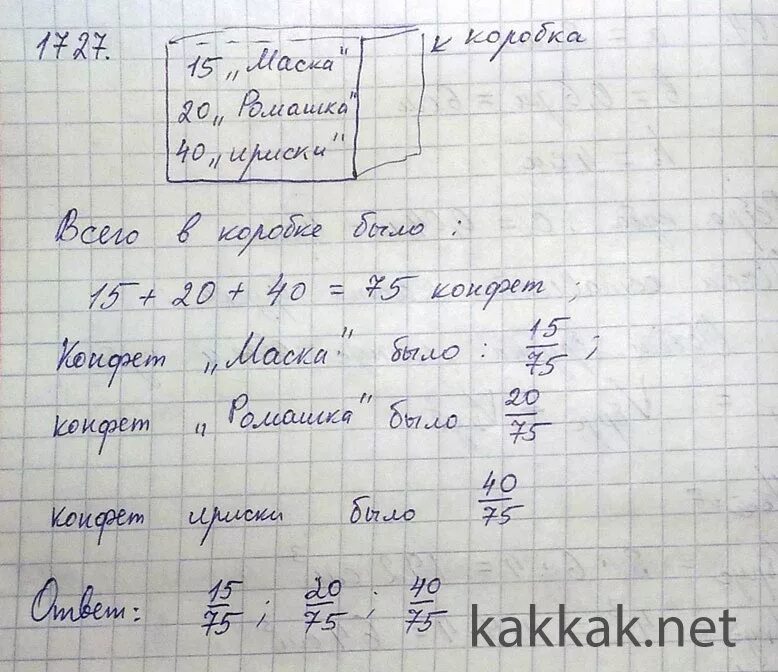 1727.
коробка
15 „Маска"
20 „Ромашка"
40 „ириски"
Всего в коробке было:
15 + 20 + 40 = 75 конфет;
Конфет „Маска" было: 15/75;
конфет „Ромашка" было 20/75
конфет ириски было 40/75
Ответ: 15/75; 20/75; 40/75
kakkak.net